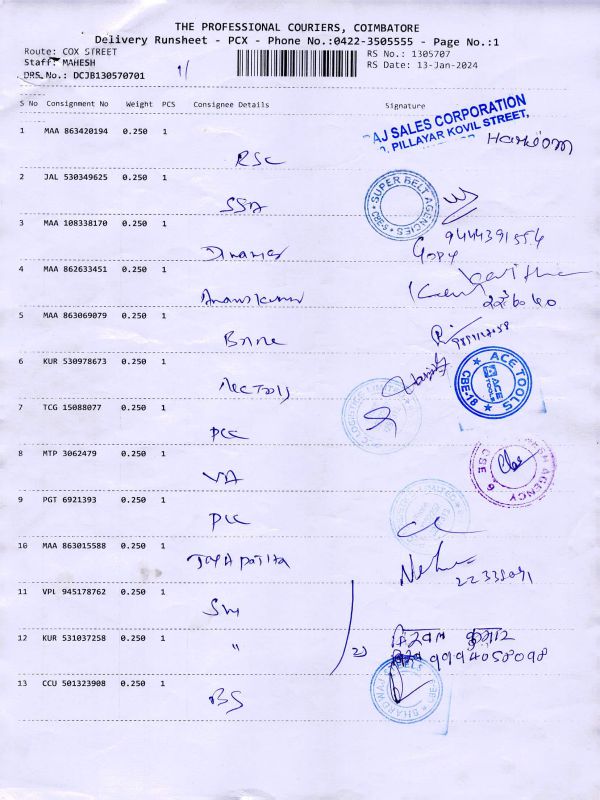 THE PROFESSIONAL COURIERS, COIMBATORE
Delivery Runsheet - PCX - Phone No.:0422-3505555 - Page No.:1
Route: COX STREET
RS No.: 1305707
Staff: MAHESH
RS Date: 13-Jan-2024
DRS No.: DCJB130570701
1/
S No Consignment No Weight PCS Consignee Details Signature
AJ SALES CORPORATION
PILLAYAR KOVIL STREET,
1 MAA 863420194 0.250 1
RSC
2 JAL 530349625 0.250 1
SUPER BELT AGENCIES
CBE-5
SSA
3 MAA 108338170 0.250 1
9444391554
Gopy
4 MAA 862633451 0.250 1
5 MAA 863069079 0.250 1
6 KUR 530978673 0.250 1
ACE TOOLS
ACE TOOLS
CBE-18
7 TCG 15088077 0.250 1
PCC
8 MTP 3062479 0.250 1
AGENCY
CBE 6
VA
9 PGT 6921393 0.250 1
PCC
10 MAA 863015588 0.250 1
11 VPL 945178762 0.250 1
12 KUR 531037258 0.250 1
"
2)
कुमार
9994058098
13 CCU 501323908 0.250 1
BHARDWAJ
BS